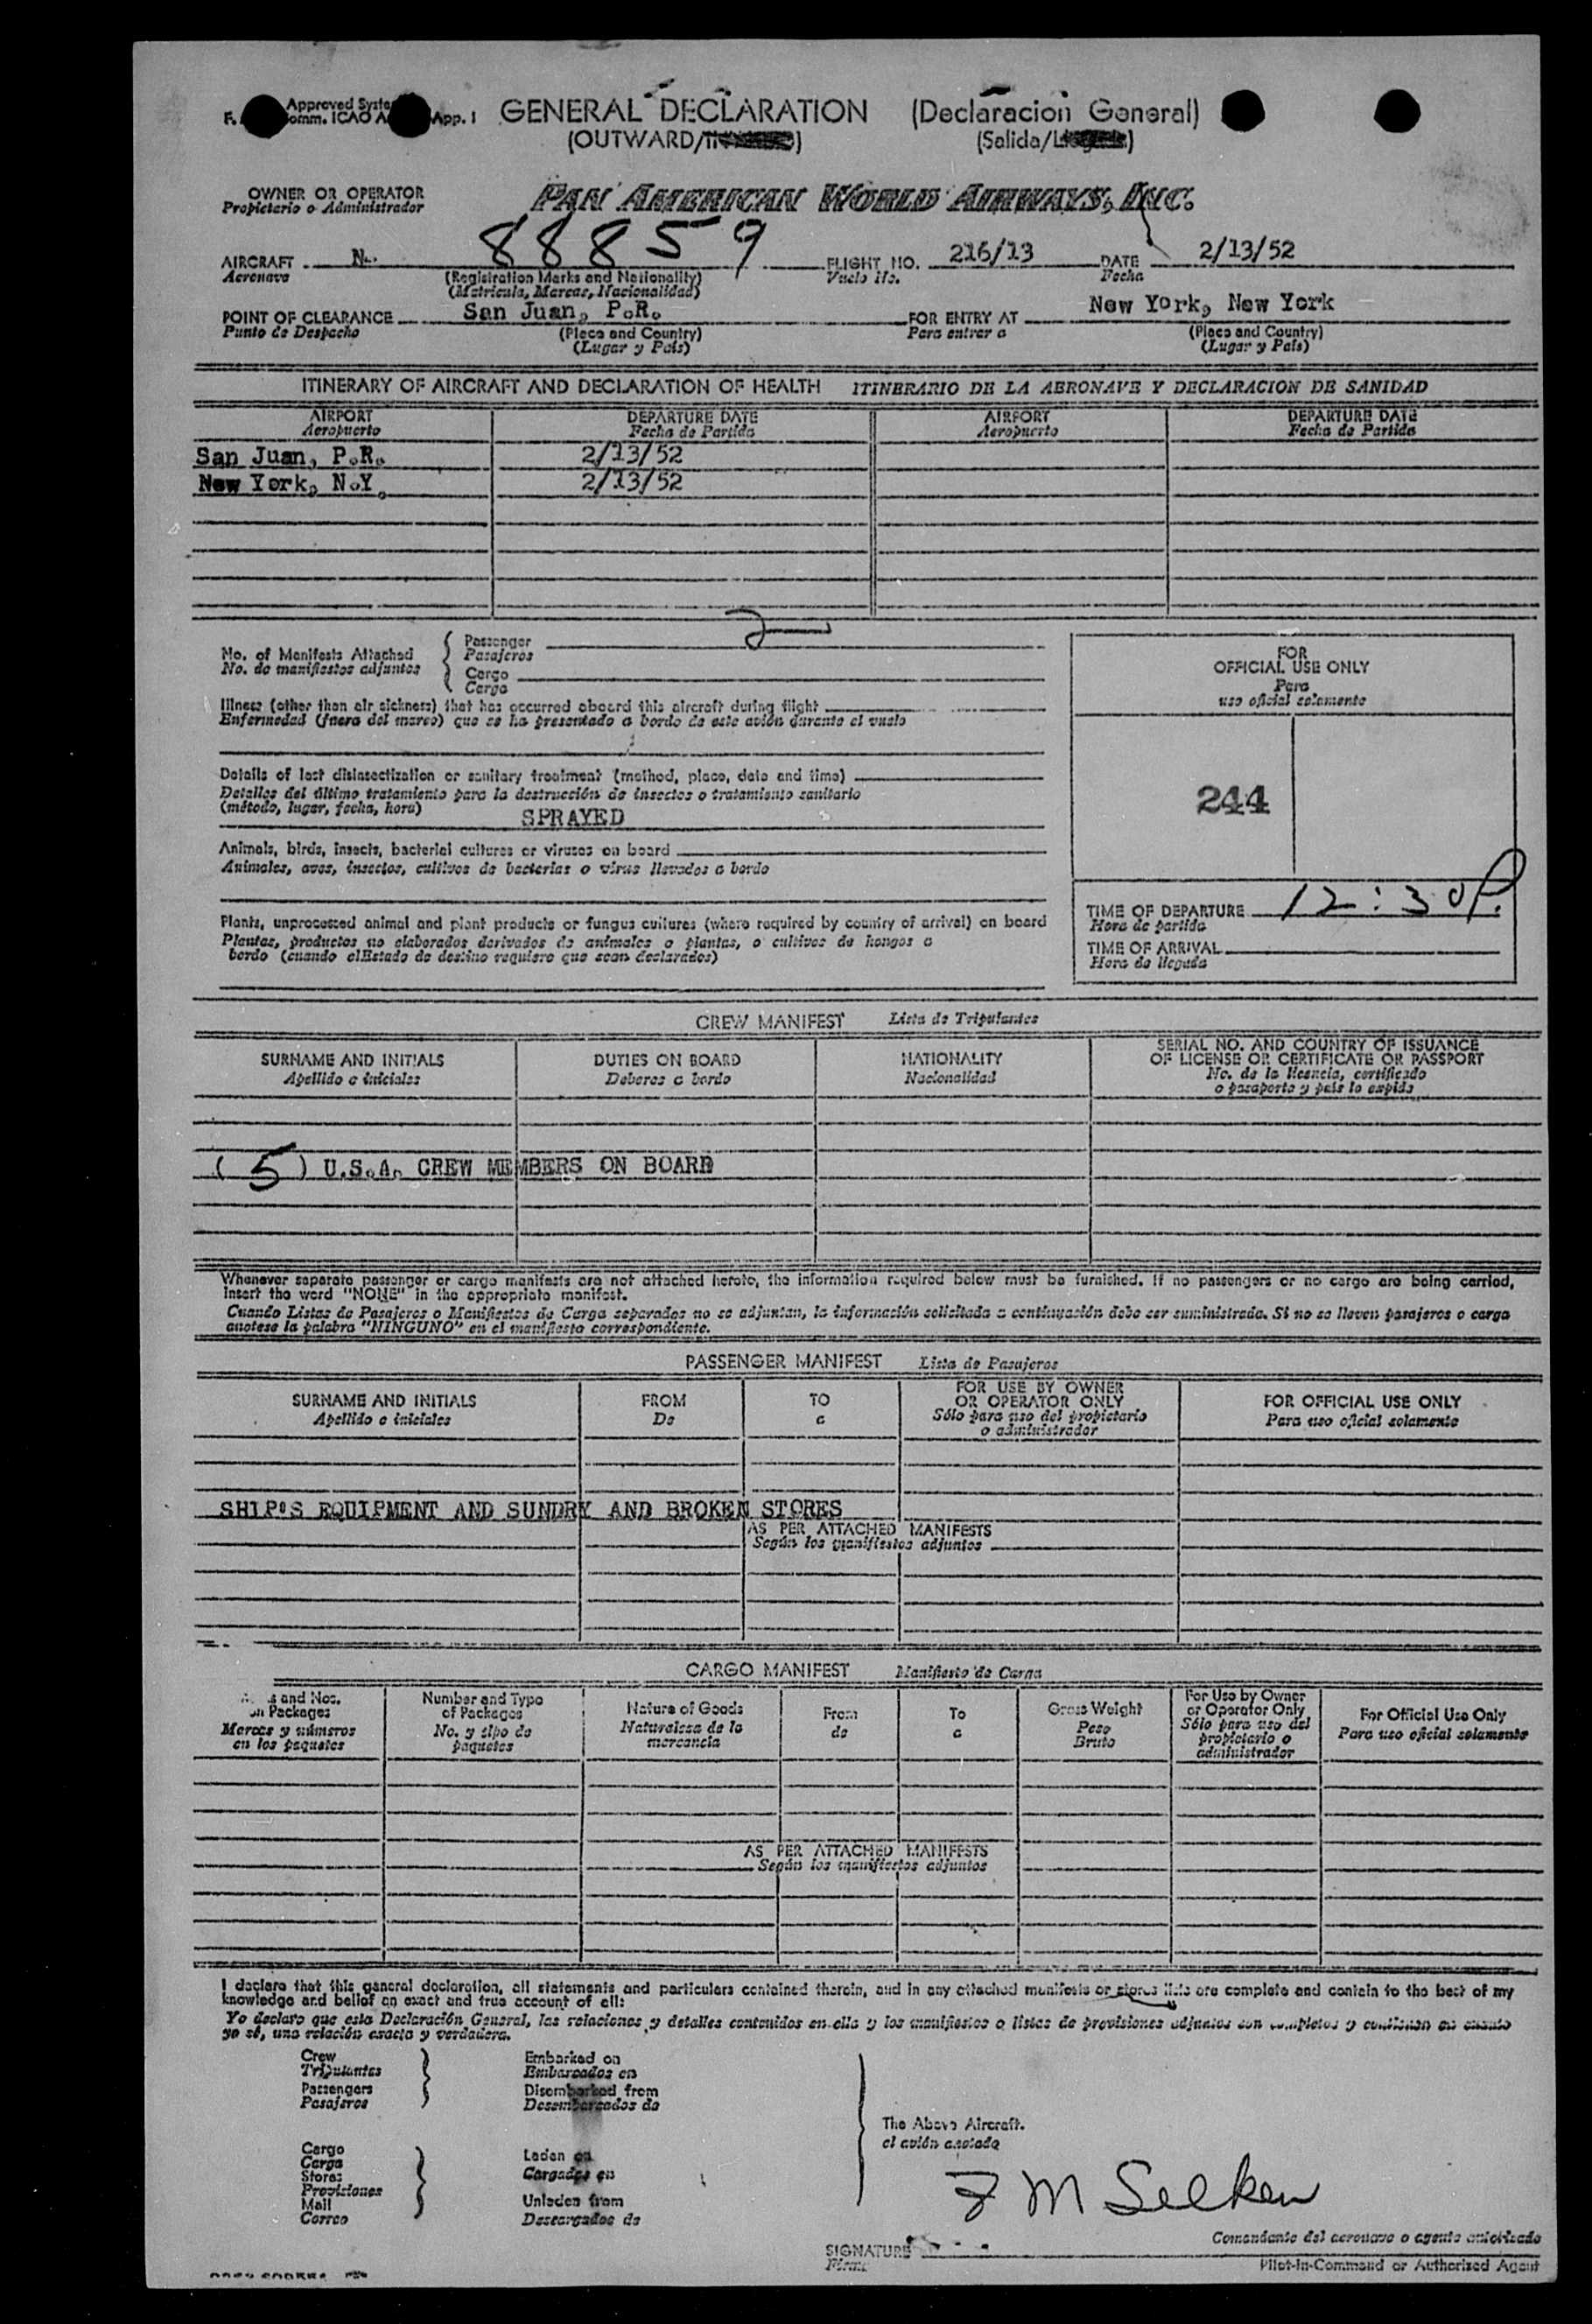 GENERAL DECLARATION (Declaracion General)
Approved
App. I
(OUTWARD/ (Salida/
OWNER OR OPERATOR PAN AMERICAN WORLD AIRWAYS, INC.
Propietario o Administrador
AIRCRAFT N. 88859 FLIGHT NO. 216/13 DATE 2/13/52
Aeronave (Registration Marks and Nationality) Vuelo No. Fecha
(Matricula, Marcas, Nacionalidad)
POINT OF CLEARANCE San Juan, P.R. FOR ENTRY AT New York, New York
Punto de Despacho (Place and Country) Para entrar a (Place and Country)
(Lugar y País) (Lugar y País)
ITINERARY OF AIRCRAFT AND DECLARATION OF HEALTH ITINERARIO DE LA AERONAVE Y DECLARACION DE SANIDAD
AIRPORT DEPARTURE DATE AIRPORT DEPARTURE DATE
Aeropuerto Fecha de Partida Aeropuerto Fecha de Partida
San Juan, P.R. 2/13/52
New York, N.Y. 2/13/52
No. of Manifests Attached Passenger 2
No. de manifiestos adjuntos Pasajeros
Cargo
Carga
Illness (other than air sickness) that has occurred aboard this aircraft during flight
Enfermedad (fuera del mareo) que se ha presentado a bordo de este avión durante el vuelo
Details of last disinsectization or sanitary treatment (method, place, date and time)
Detalles del último tratamiento para la destrucción de insectos o tratamiento sanitario
(método, lugar, fecha, hora)
SPRAYED
Animals, birds, insects, bacterial cultures or viruses on board
Animales, aves, insectos, cultivos de bacterias o virus llevados a bordo
Plants, unprocessed animal and plant products or fungus cultures (where required by country of arrival) on board
Plantas, productos no elaborados derivados de animales o plantas, o cultivos de hongos a
bordo (cuando el Estado de destino requiere que sean declarados)
FOR
OFFICIAL USE ONLY
Para
uso oficial solamente
244
TIME OF DEPARTURE 12:30P.
Hora de partida
TIME OF ARRIVAL
Hora de llegada
CREW MANIFEST Lista de Tripulantes
SURNAME AND INITIALS DUTIES ON BOARD NATIONALITY SERIAL NO. AND COUNTRY OF ISSUANCE
OF LICENSE OR CERTIFICATE OR PASSPORT
Apellido e iniciales Deberes a bordo Nacionalidad No. de la licencia, certificado
o pasaporte y país lo expide
(5) U.S.A. CREW MEMBERS ON BOARD
Whenever separate passenger or cargo manifests are not attached hereto, the information required below must be furnished. If no passengers or no cargo are being carried,
insert the word "NONE" in the appropriate manifest.
Cuando Listas de Pasajeros o Manifiestos de Carga separados no se adjuntan, la información solicitada a continuación debe ser suministrada. Si no se lleven pasajeros o carga
anotese la palabra "NINGUNO" en el manifiesto correspondiente.
PASSENGER MANIFEST Lista de Pasajeros
SURNAME AND INITIALS FROM TO FOR USE BY OWNER FOR OFFICIAL USE ONLY
OR OPERATOR ONLY
Apellido e iniciales De a Sólo para uso del propietario Para uso oficial solamente
o administrador
SHIP'S EQUIPMENT AND SUNDRY AND BROKEN STORES
AS PER ATTACHED MANIFESTS
Según los manifiestos adjuntos
CARGO MANIFEST Manifiesto de Carga
and Nos. Number and Type Nature of Goods From To Gross Weight For Use by Owner For Official Use Only
on Packages of Packages or Operator Only
Marcas y números No. y tipo de Naturaleza de la de a Peso Sólo para uso del Para uso oficial solamente
en los paquetes paquetes mercancia Bruto propietario o
administrador
AS PER ATTACHED MANIFESTS
Según los manifiestos adjuntos
I declare that this general declaration, all statements and particulars contained therein, and in any attached manifests or stores lists are complete and contain to the best of my
knowledge and belief an exact and true account of all:
Yo declaro que esta Declaración General, las relaciones y detalles contenidos en ella y los manifiestos o listas de provisiones adjuntos son completos y contienen en cuanto
yo sé, una relación exacta y verdadera.
Crew Embarked on
Tripulantes Embarcados en
Passengers Disembarked from
Pasajeros Desembarcados de
The Above Aircraft.
el avión anotado
Cargo Laden on
Carga Cargados en
Stores
Provisiones
Mail Unladen from
Correo Descargados de
SIGNATURE
Firma
Comandante del aeronave o agente autorizado
Pilot-in-Command or Authorized Agent